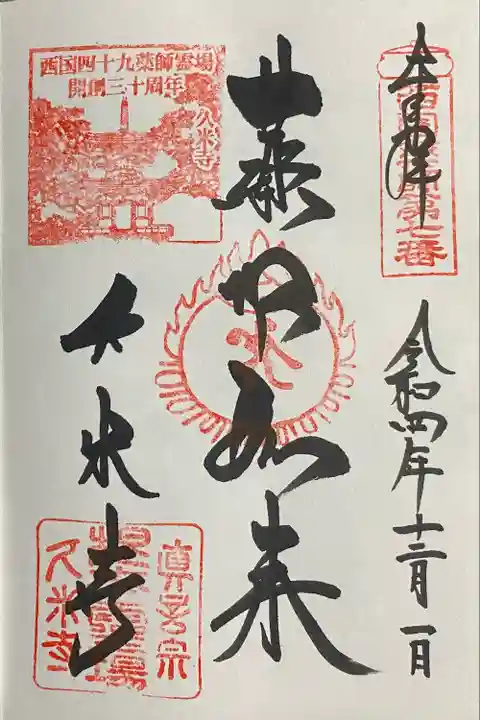 奉拝
西国薬師第七番
令和四年十二月一日
薬師如来
西国四十九薬師霊場
開創三十周年
久米寺
久米寺
真言宗
久米寺